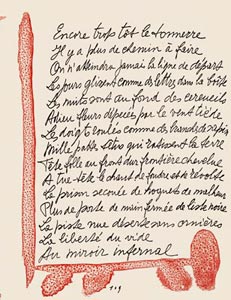 Encore trop tôt le tonnerre
Il y a plus de chemin à faire
On n'atteindra jamais la ligne de départ
Les jours glissent comme des lettres dans la boîte
Les nuits sont au fond des cercueils
Adieu fleurs par le vent
Les doigts roulés comme des branches de sapin
Mille pattes qui ratissent la terre
Tête folle au front dur frontière chevelue
A tue tête le chant de foudre et de révolte
La prison secouée de hoquets de malheur
Plus de porte de main fermée de liste noire
La piste nue déserte sans ornières
La liberté du vide
Au miroir infernal